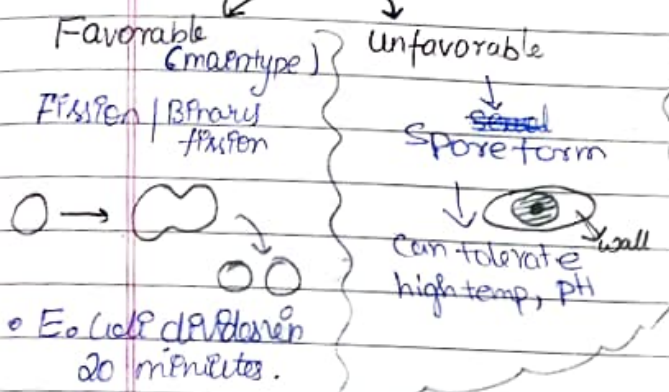 Favorable
(maintype)
Fission | Binary
fission
• E. Coli divides in
20 minutes.
Unfavorable
Spore form
wall
Can tolerate
high temp, pH